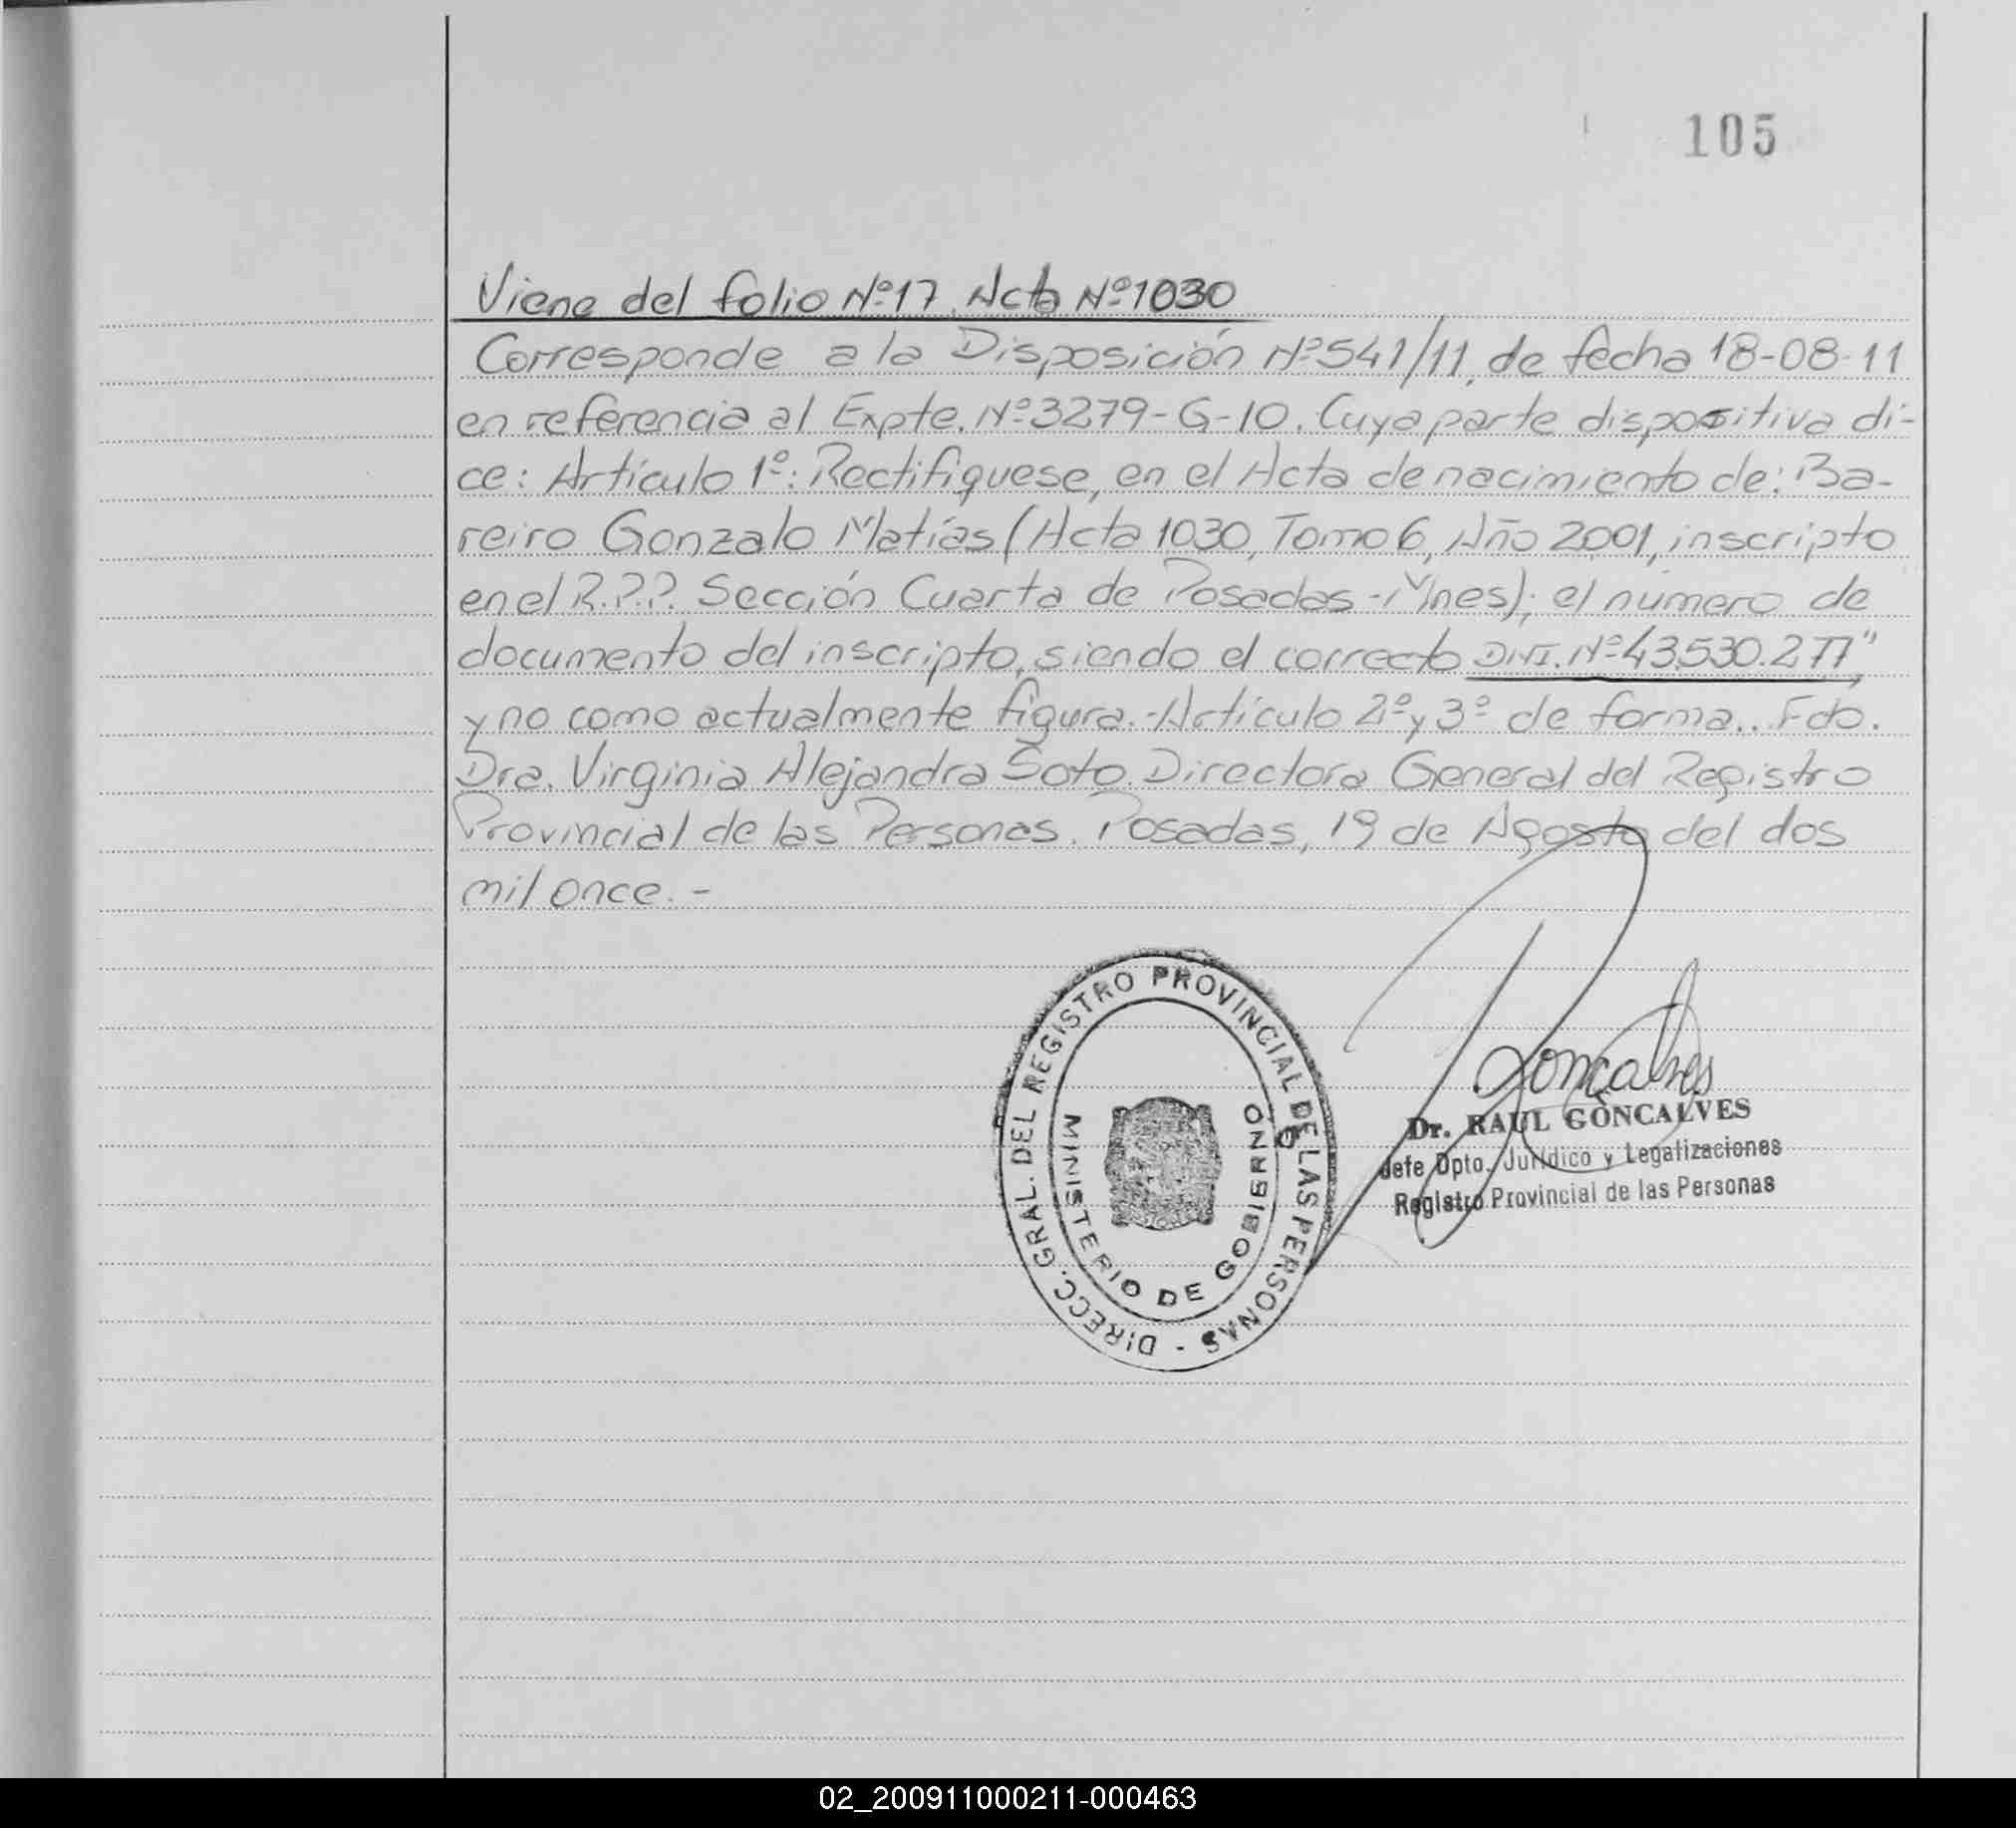 105
Viene del folio Nº17, Acta Nº1030
Corresponde a la Disposición Nº541/11, de fecha 18-08-11
en referencia al Expte. Nº3279-G-10. Cuya parte dispositiva di-
ce: Artículo 1º: Rectifiquese, en el Acta de nacimiento de: Ba-
reiro Gonzalo Matías (Acta 1030, Tomo 6, Año 2001, inscripto
en el R.P.P. Sección Cuarta de Posadas - Mnes); el número de
documento del inscripto, siendo el correcto D.N.I. Nº43.530.277"
y no como actualmente figura.- Artículo 2º y 3º de forma.. Fdo.
Dra. Virginia Alejandra Soto. Directora General del Registro
Provincial de las Personas. Posadas, 19 de Agosto del dos
mil once.-
DIRECC. GRAL. DEL REGISTRO PROVINCIAL DE LAS PERSONAS -
MINISTERIO DE GOBIERNO
Gonçalves
Dr. RAUL GONCALVES
Jefe Dpto. Jurídico y Legalizaciones
Registro Provincial de las Personas
02_200911000211-000463